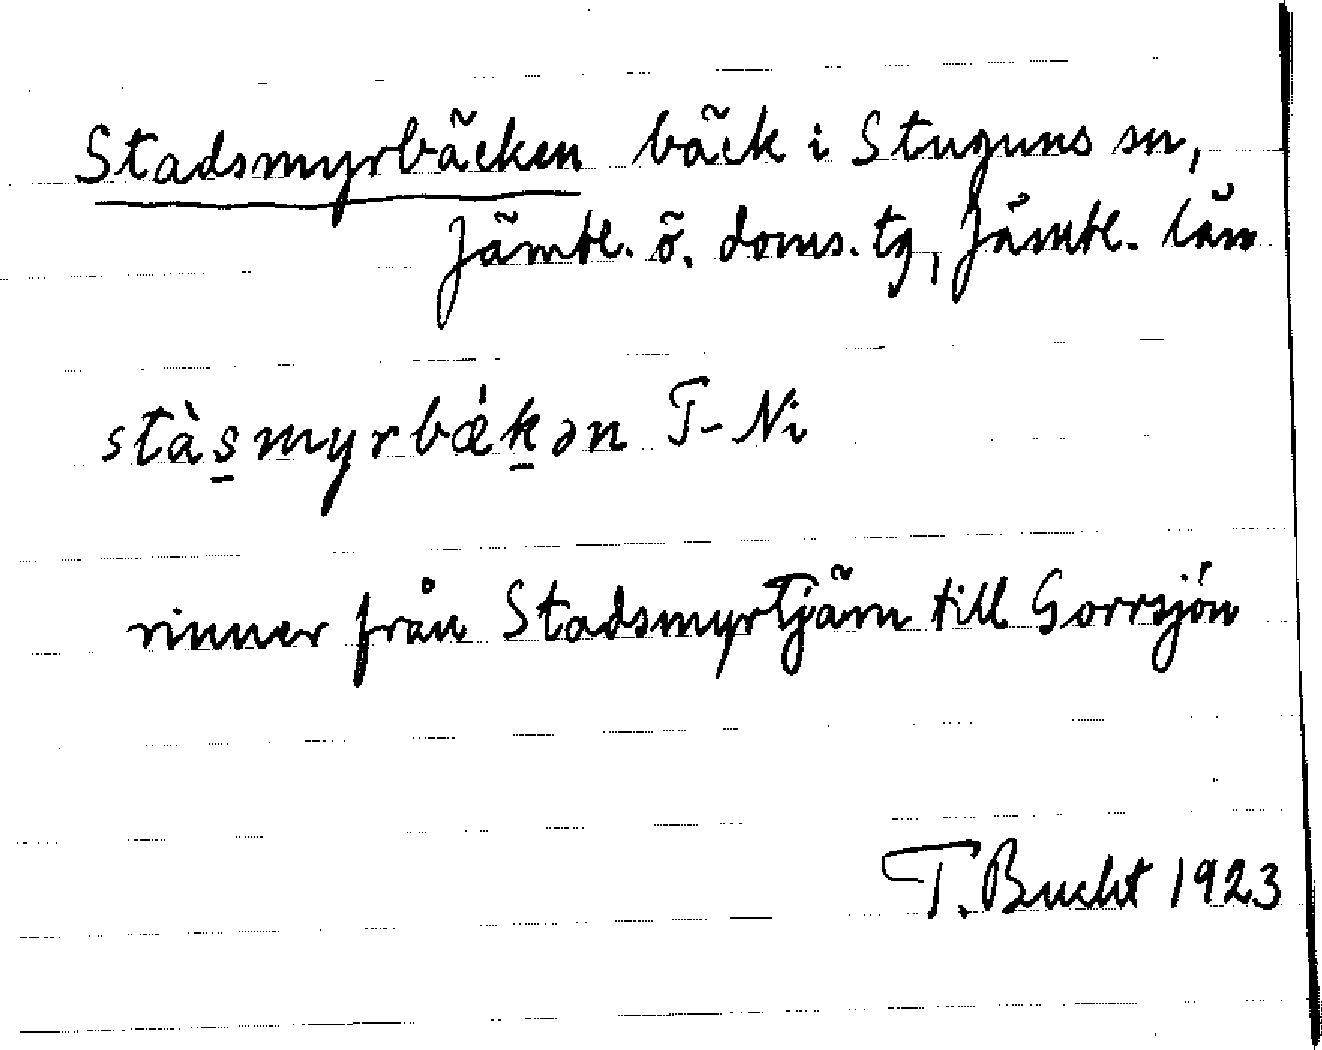 Stadsmyrbäcken bäck i Stuguns sn,
Jämtl. ö. doms. tg, Jämtl. län
stàs̠myrbǽk̠ən T-Ni
rinner från Stadsmyrtjärn till Gorrsjön
T. Bucht 1923